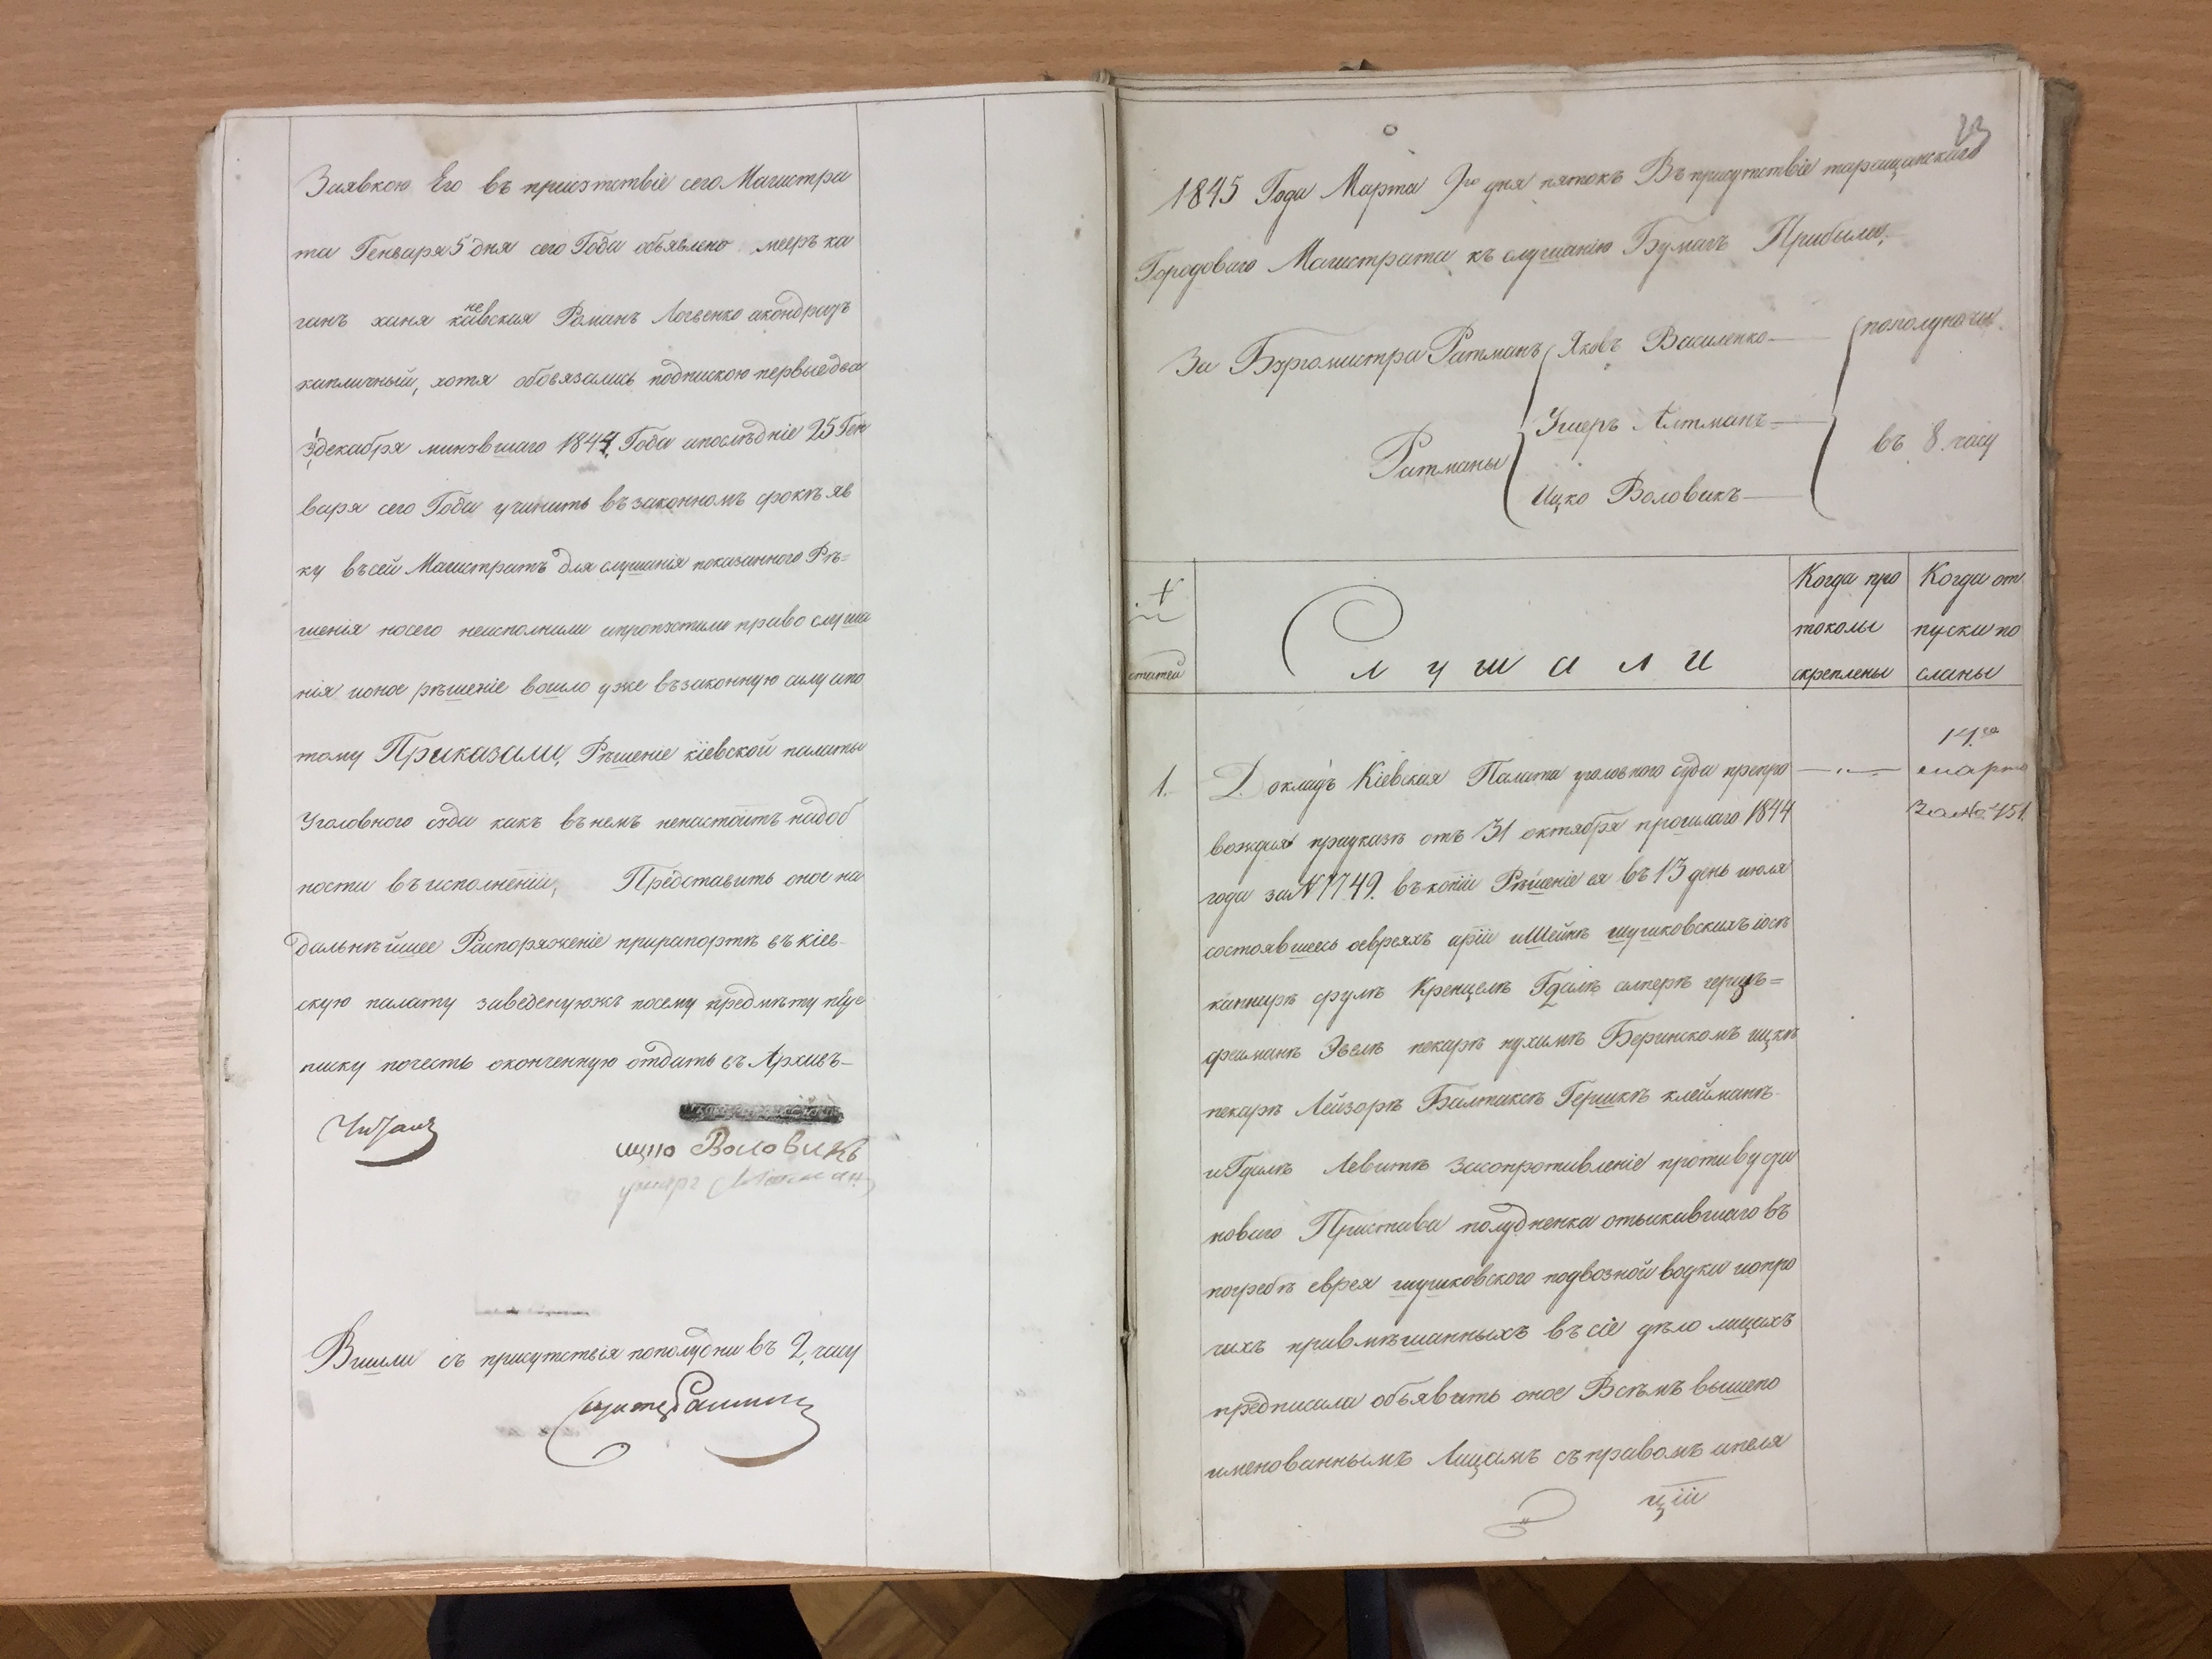 Заявкою Его въ присэтствіе сего Магистра
та Генваря 5 дня сего Года обявлено мееръ ка
ганъ ханя каневская Романъ Логвенко акондратъ
капличный, хотя обовязались подпискою первые два
3 декабря минэвшаго 1844 Года апослѣдніе 25 Ген
варя сего Года учинить въ законномъ срокѣ яв
ку въ сей Магистратъ для слушанія показанного Рѣ=
шенія носего неисполнили ипропэстили право слуша
нія ионое рѣшеніе вошло уже въ законную силу апо
тому Приказали, Рѣшеніе кіевской палаты
Уголовного сэда какъ въ немъ ненастоитъ надоб
ности въ исполненіи, Представить оное на
дальнѣйшее Распоряженіе прирапортѣ въ кіев-
скую палату заведенуюжъ посему предмѣту
писку почесть оконченную отдать въ Архивъ-
Читалъ
ицко Воловикъ
ушеръ
Вишли съ присутствія пополудни въ 2, часу
23
1845 Года Марта 9го дня пятокъ Въ присутствіе таращанскаго
Городоваго Магистрата къ слушанію Бумагъ Прибыли,
За Бэргомистра Ратманъ Яковъ Василенко пополуночи
Ратманы Ушеръ Алтманъ въ 8. часу
Ицко Воловикъ
статей Слушали Когда про Когда от
токолы пуски по
скреплены сланы
14го
1. Докладъ Кіевская Палата уголовного суда препро марта
вождая приуказѣ отъ 31 октября прошлаго 1844 За № 451.
года за N 1749. въ копіи Рѣшеніе ея въ 13 день июля
состоявшеесь оевреяхъ аріи иШейнѣ шушковскихъ іоск
каннирѣ срулѣ Кренцелѣ Гдалѣ алперѣ герцъ=
феиманѣ Эвелѣ пекарѣ нухимѣ Беринскомъ ицкѣ
пекарѣ Лейзорѣ Балтаксѣ Гершкѣ клейманѣ
иГдалѣ Левитѣ засопротивленіе противу ста
новаго Пристава полудненка отыскавшаго въ
погребѣ еврея шушковского подвозной водки иопро
чихъ привмѣшанныхъ въ сіе дѣло лицахъ
предписала объявить оное Всѣмъ вышепо
именованнымъ Лицамъ съ правомъ апеля
ціи